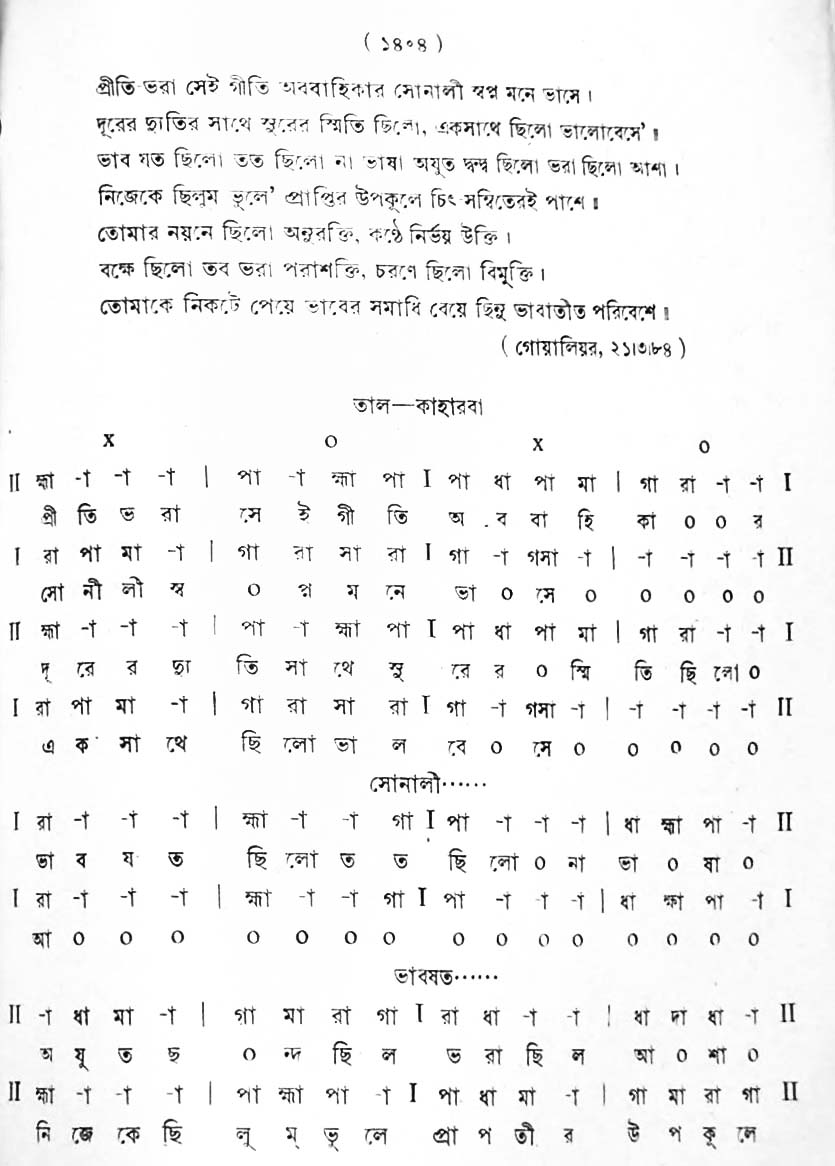 ( ১৪০৪ )
প্রীতি ভরা সেই গীতি অববাহিকার সোনালী স্বপ্ন মনে ভাসে ।
দূরের দ্যুতির সাথে সুরের স্মিতি ছিলো, একসাথে ছিলো ভালোবেসে’ ॥
ভাব যত ছিলো তত ছিলো না ভাষা অযুত দ্বন্দ্ব ছিলো ভরা ছিলো আশা ।
নিজেকে ছিলুম ভুলে’ প্রাপ্তির উপকূলে চিৎ-সম্বিতেরই পাশে ॥
তোমার নয়নে ছিলো অনুরক্তি, কণ্ঠে নির্ভয় উক্তি ।
বক্ষে ছিলো তব ভরা পরাশক্তি, চরণে ছিলো বিমুক্তি ।
তোমাকে নিকটে পেয়ে ভাবের সমাধি বেয়ে ছিনু ভাবাতীত পরিবেশে ॥
( গোয়ালিয়র, ২১।৩।৮৪ )
তাল—কাহারবা
X O X O
II হ্মা -া -া -া | পা -া হ্মা পা I পা ধা পা মা | গা রা -া -া I
প্রী তি ভ রা সে ই গী তি অ ব বা হি কা ০ ০ র
I রা পা মা -া | গা রা সা রা I গা -া গসা -া | -া -া -া -া II
সো নী লী স্ব ০ প্ন ম নে ভা ০ সে ০ ০ ০ ০ ০
II হ্মা -া -া -া | পা -া হ্মা পা I পা ধা পা মা | গা রা -া -া I
দূ রে র দ্যু তি সা থে সু রে র ০ স্মি তি ছি লো ০
I রা পা মা -া | গা রা সা রা I গা -া গসা -া | -া -া -া -া II
এ ক সা থে ছি লো ভা ল বে ০ সে ০ ০ ০ ০ ০
সোনালী······
I রা -া -া -া | হ্মা -া -া গা I পা -া -া -া | ধা হ্মা পা -া II
ভা ব য ত ছি লো ত ত ছি লো ০ না ভা ০ ষা ০
I রা -া -া -া | হ্মা -া -া গা I পা -া -া -া | ধা হ্মা পা -া I
আ ০ ০ ০ ০ ০ ০ ০ ০ ০ ০ ০ ০ ০ ০ ০
ভাবযত······
II -া ধা মা -া | গা মা রা গা I রা ধা -া -া | ধা দা ধা -া II
অ যু ত দ্ব ০ ন্দ ছি ল ভ রা ছি ল আ ০ শা ০
II হ্মা -া -া -া | পা হ্মা পা -া I পা ধা মা -া | গা মা রা গা II
নি জে কে ছি লু ম্ ভু লে প্রা প তী র উ প কূ লে